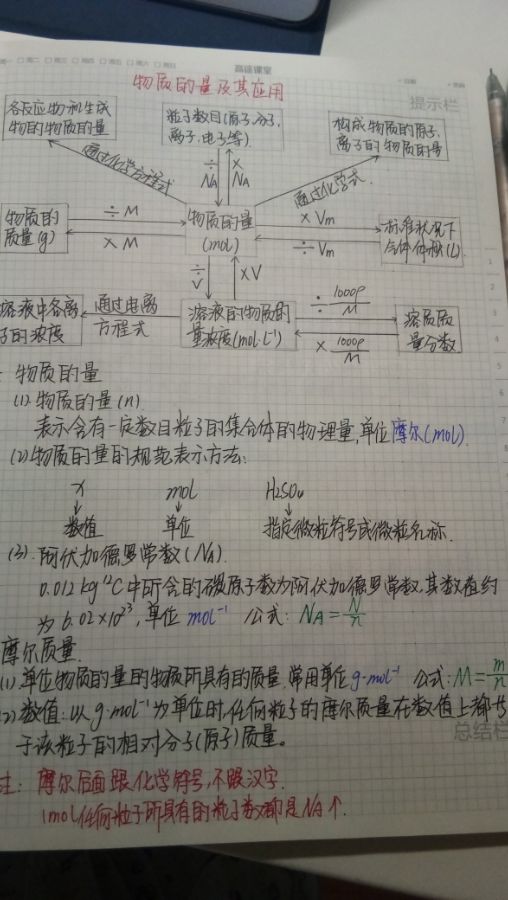 周二 周三 周四 周五 周六 周日
高途课堂
提示栏
物质的量及其应用
各反应物和生成
物的物质的量
粒子数目(原子,分子,
离子,电子等)
构成物质的原子,
离子的物质的量
通过化学方程式
÷ NA
× NA
通过化学式
物质的
质量(g)
÷ M
× M
物质的量
(mol)
× Vm
÷ Vm
标准状况下
气体体积(L)
÷ V
× V
溶液中各离
子的浓度
通过电离
方程式
溶液的物质的
量浓度(mol·L⁻¹)
÷ 1000ρ/M
× 1000ρ/M
溶质质
量分数
物质的量
(1). 物质的量(n)
表示含有一定数目粒子的集合体的物理量,单位摩尔(mol).
(2)物质的量的规范表示方法:
x mol H2SO4
↓ ↓ ↓
数值 单位 指定微粒符号或微粒名称.
(3). 阿伏加德罗常数(NA).
0.012 kg ¹²C中所含的碳原子数为阿伏加德罗常数,其数值约
为 6.02×10²³, 单位 mol⁻¹ 公式: NA = N/n
摩尔质量.
(1).单位物质的量的物质所具有的质量,常用单位 g·mol⁻¹ 公式: M = m/n
(2)数值:以 g·mol⁻¹ 为单位时,任何粒子的摩尔质量在数值上都
于该粒子的相对分子(原子)质量。
总结栏
注: 摩尔后面跟化学符号,不跟汉字.
1mol任何粒子所具有的粒子数都是NA个.